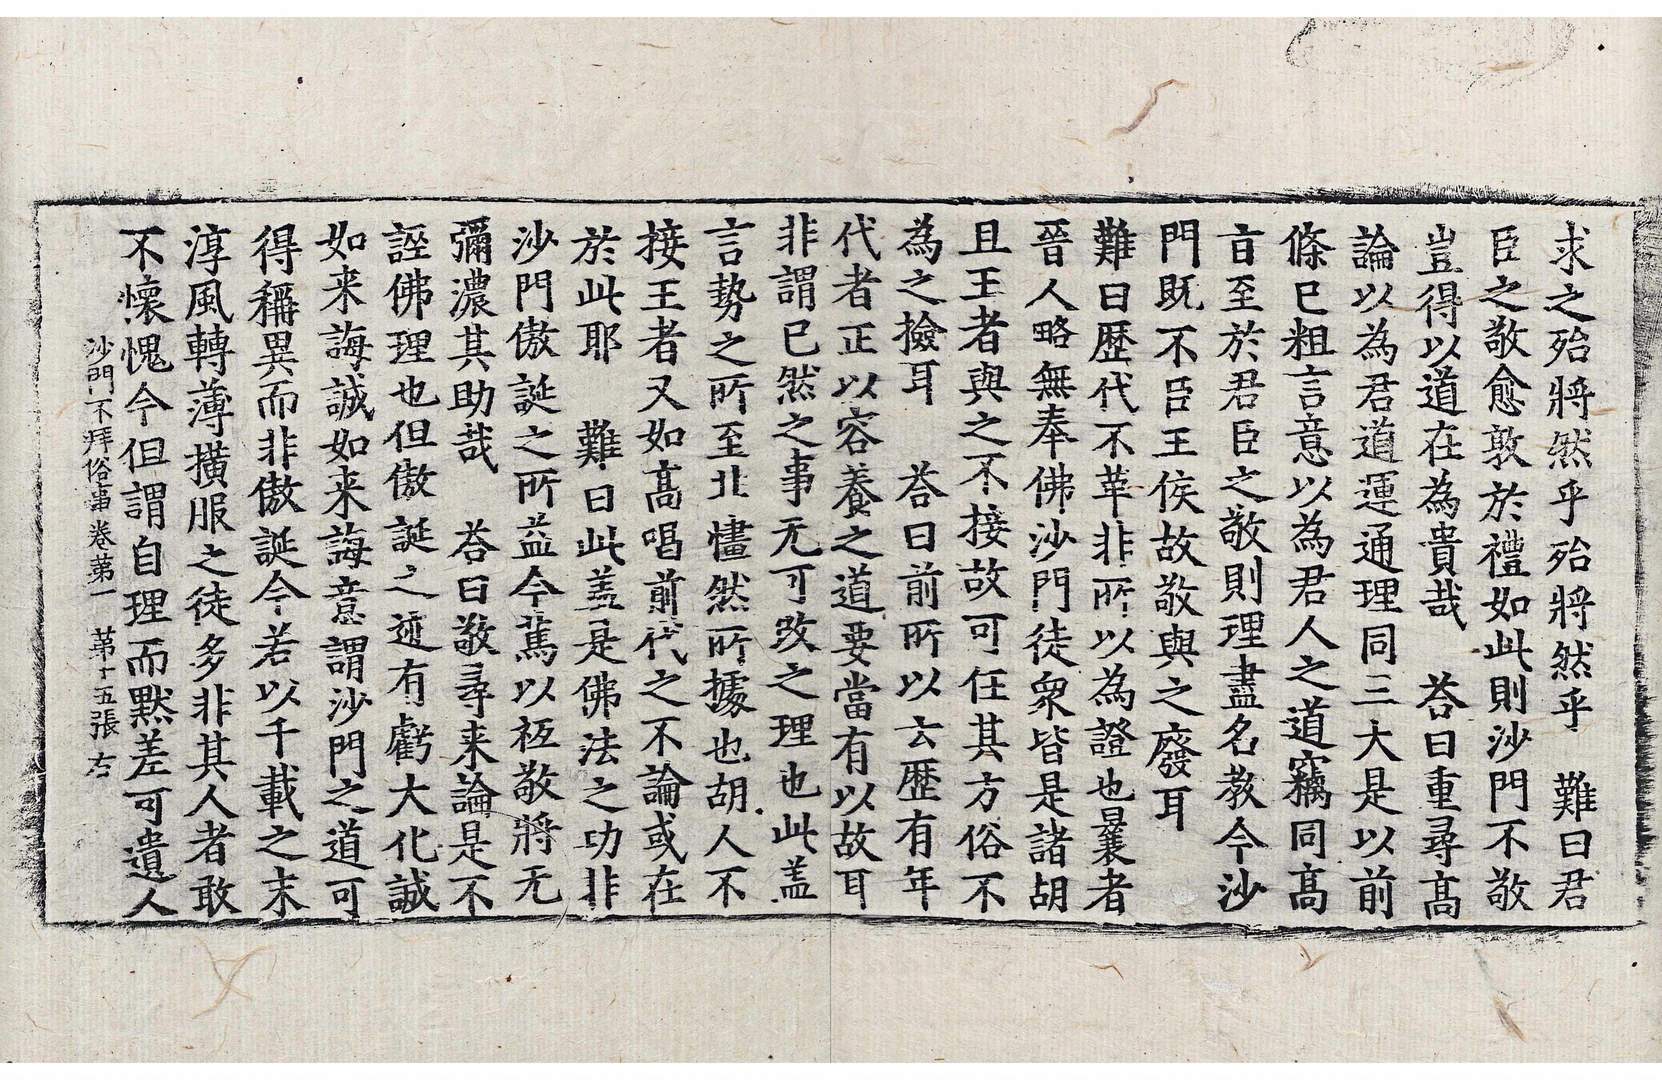 求之殆將然乎殆將然乎　難曰君
臣之敬愈敦於禮如此則沙門不敬
豈得以道在為貴哉　荅曰重尋髙
論以為君道運通理同三大是以前
條已粗言意以為君人之道竊同髙
㫖至於君臣之敬則理盡名教今沙
門既不臣王侯故敬與之廢耳
難曰歷代不革非所以為證也曩者
晉人略無奉佛沙門徒衆皆是諸胡
且王者與之不接故可任其方俗不
為之撿耳　荅曰前所以云歷有年
代者正以容養之道要當有以故耳
非謂已然之事无可改之理也此盖
言勢之所至非𢢔然所據也胡人不
接王者又如髙唱前代之不論或在
於此耶　難曰此盖是佛法之功非
沙門傲誕之所益今篤以祗敬將无
彌濃其助哉　荅曰敬尋来論是不
誣佛理也但傲誕之迹有虧大化誠
如来誨誠如来誨意謂沙門之道可
得稱異而非傲誕今若以千載之末
淳風轉薄橫服之徒多非其人者敢
不懷愧今但謂自理而默差可遺人
沙門不拜俗事卷苐一　苐十五張　右